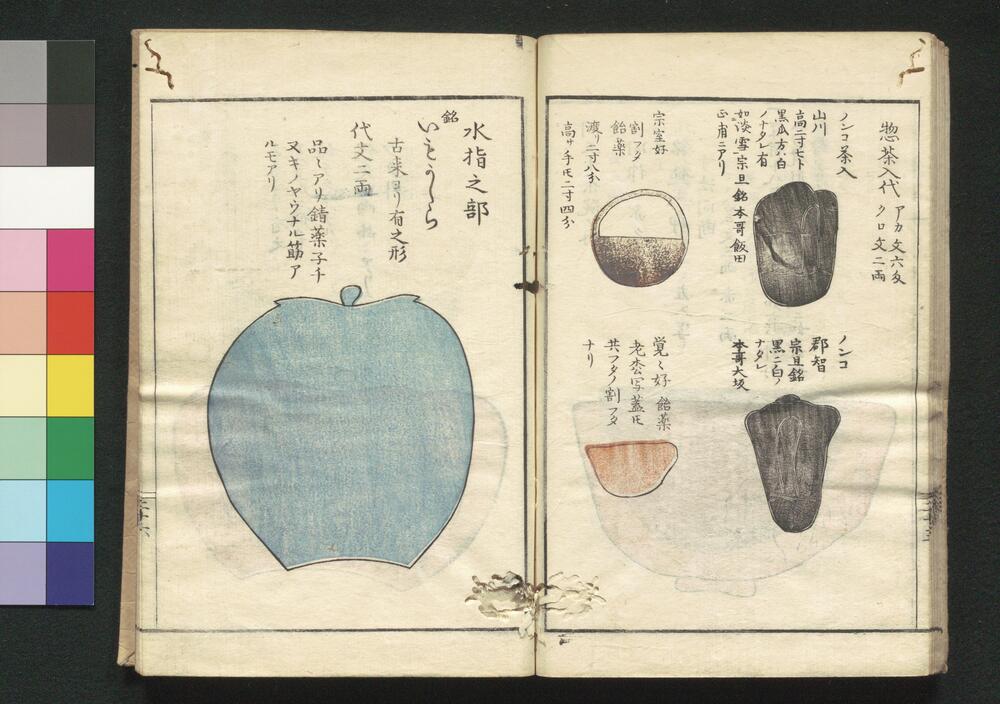 惣茶入代 アカ 文六匁
クロ 文二両
ノンコ茶入
山川
高二寸七ト
黒瓜方ハ白
ノナタレ有
如淡雪宗旦銘本哥飯田
正甫ニアリ
宗室好
割フタ
飴薬
渡リ二寸八分
高サ手モ二寸四分
ノンコ
郡智
宗旦銘
黒ニ白ノ
ナタレ
本哥大坂
覚々好 飴薬
老松写蓋モ
共フタノ割フタ
ナリ
水指之部
銘
古来ヨリ有之形
代文二両
品々アリ錆薬子チ
又キノヤウナル筋ア
ルモアリ